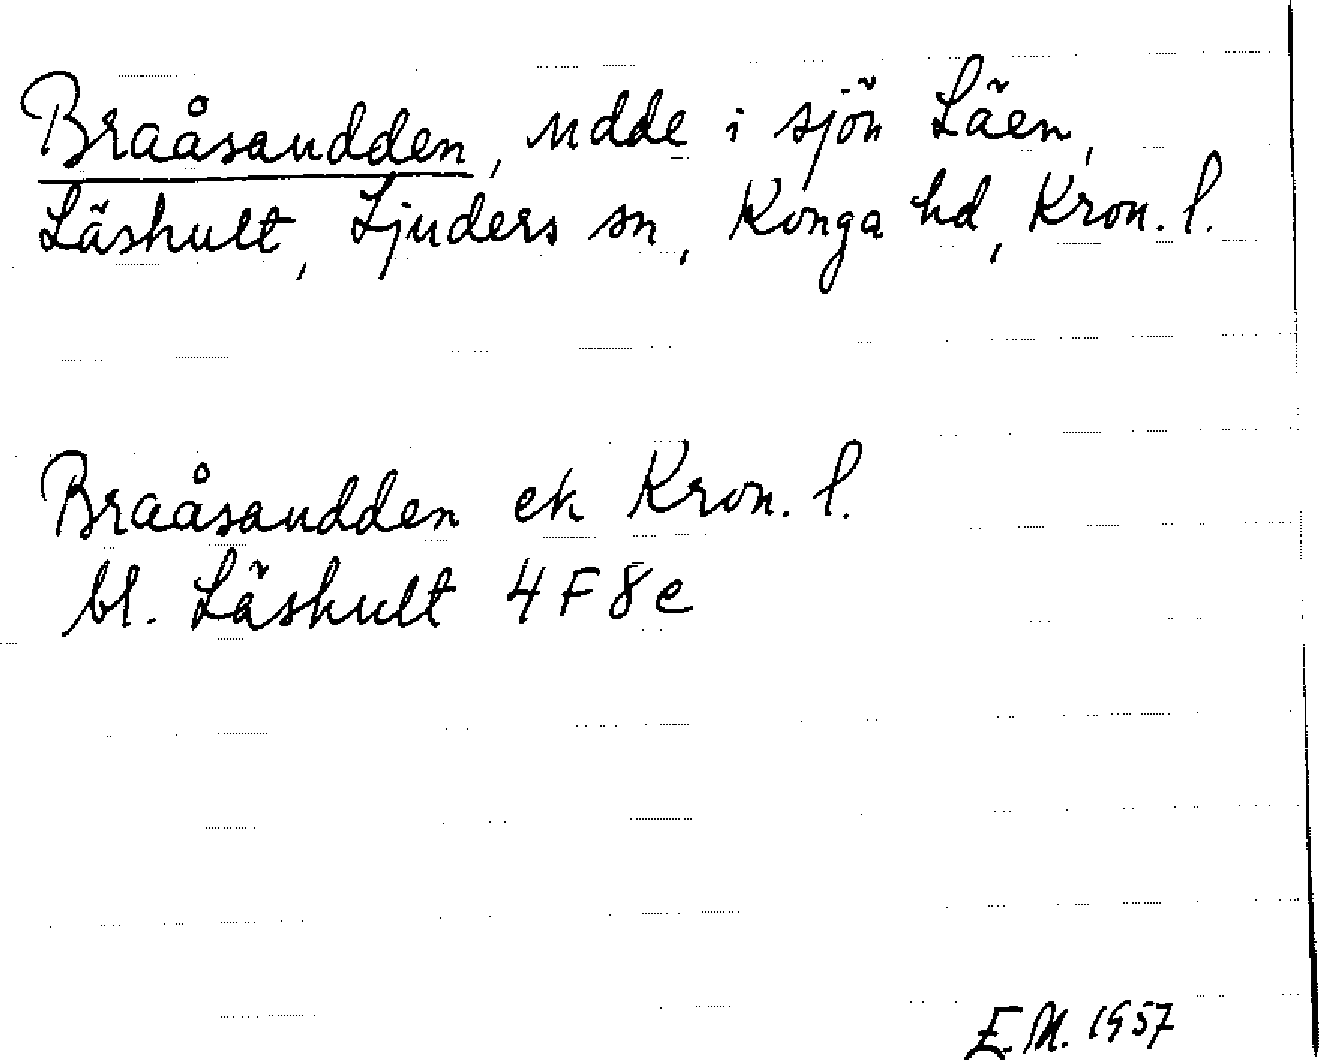 Braåsaudden, udde i sjön Läen,
Läshult, Ljuders sn, Konga hd, Kron. l.
Braåsaudden ek Kron. l.
bl. Läshult 4F8e
E.M. 1957